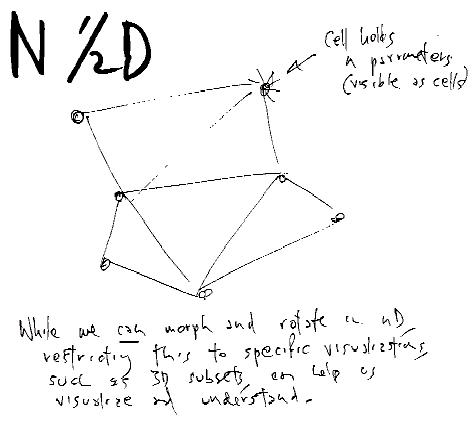 N 1/2 D
Cell holds
n parameters
(visible as cells)
While we can morph and rotate in nD
restricting this to specific visualizations,
such as 3D subsets, can help us
visualize and understand.